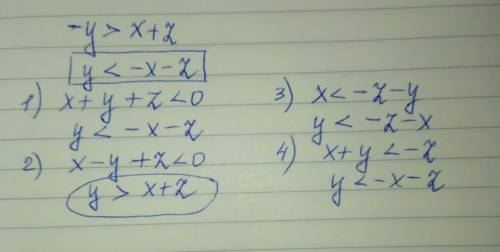 -y > x+z
y < -x-z
1) x+y+z<0
y < -x-z
2) x-y+z<0
y > x+z
3) x< -z-y
y < -z-x
4) x+y < -z
y < -x-z